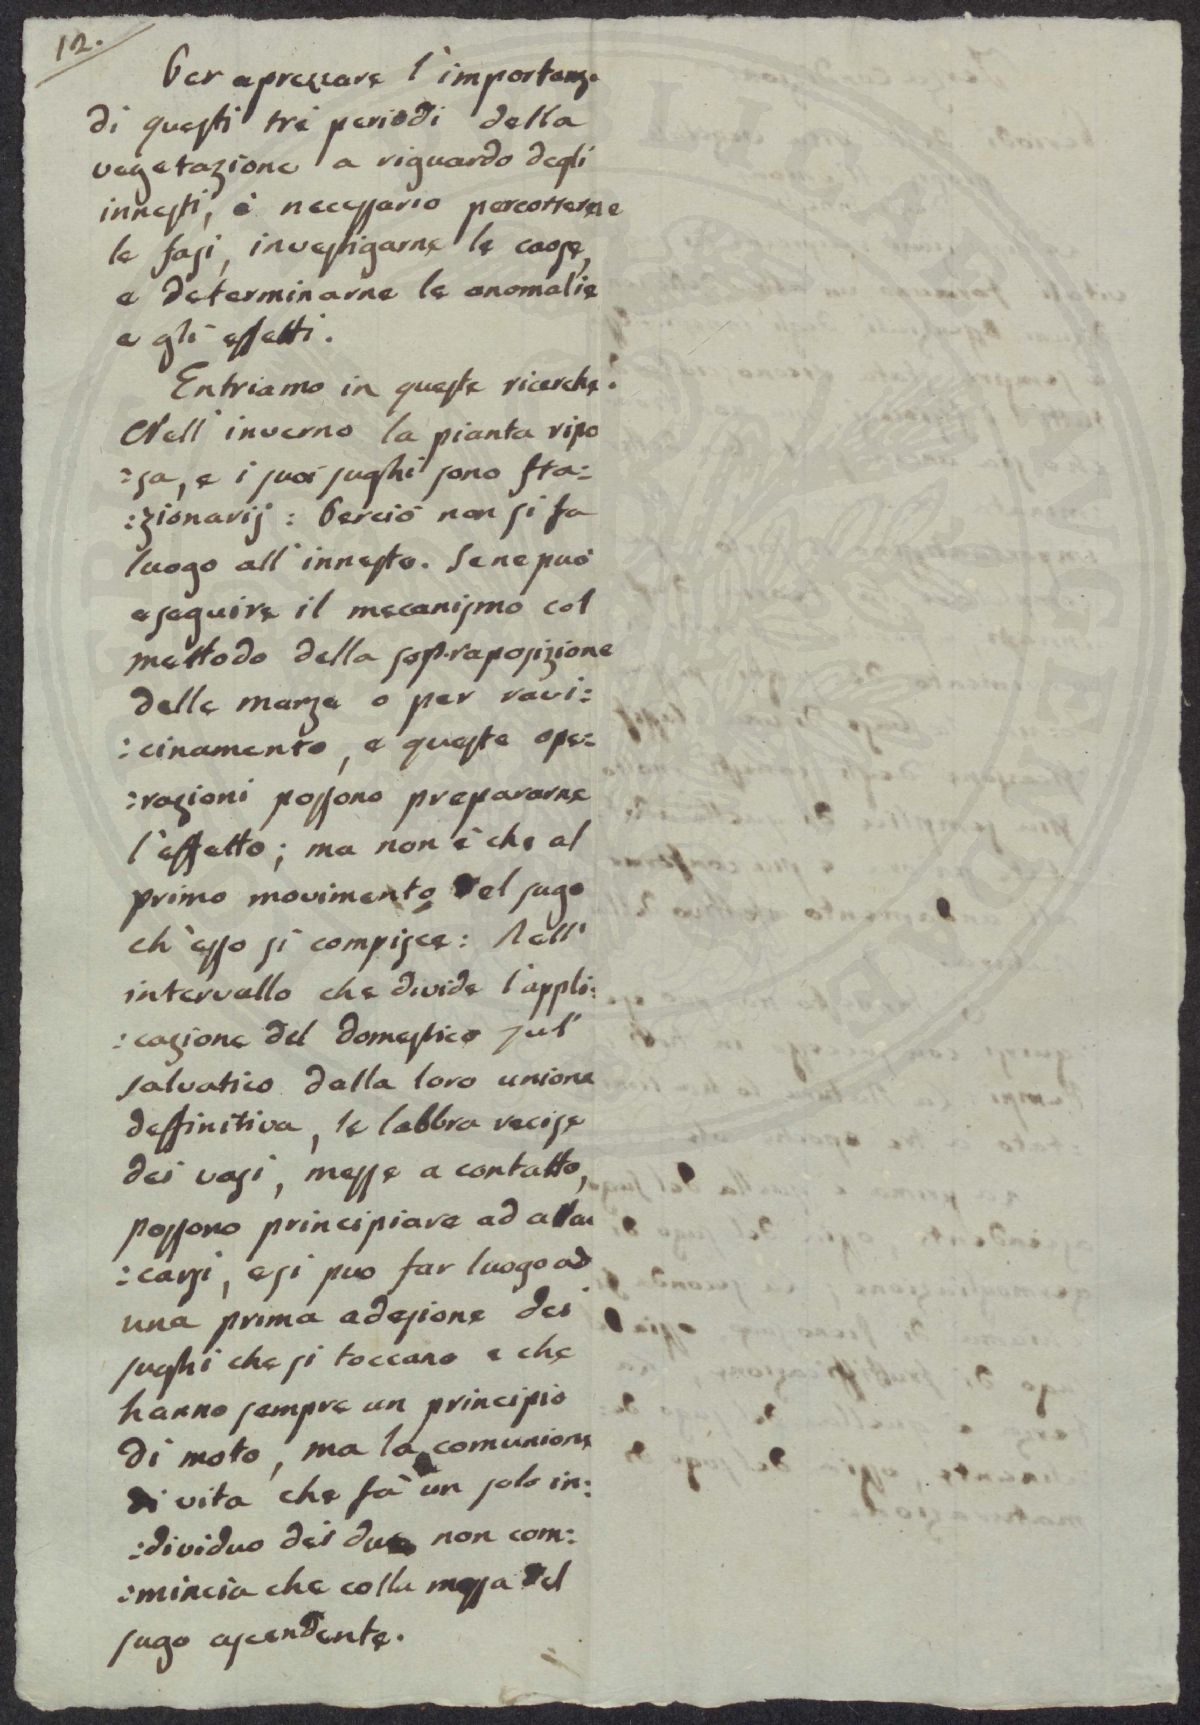 12.
Per aprezzare l'importanza
di questi tre periodi della
vegetazione a riguardo degli
innesti, è necessario percorrerne
le fasi, investigarne le cause,
e determinarne le anomalie
e gli effetti.
Entriamo in queste ricerche.
Nell' inverno la pianta ripo
:sa, e i suoi sughi sono sta:
:zionarij: Perciò non si fa
luogo all' innesto. Se ne può
eseguire il mecanismo col
mettodo della sopraposizione
delle marze o per ravi:
:cinamento, e queste ope:
:razioni possono prepararne
l'effetto; ma non è che al
primo movimento del sugo
ch'esso si compisce: Nell'
intervallo che divide l'appli:
:cazione del domestico sul'
salvatico dalla loro unione
deffinitiva, le labbra recise
dei vasi, messe a contatto,
possono principiare ad attac
:carsi, e si puo far luogo ad
una prima adesione dei
sughi che si toccano e che
hanno sempre un principio
di moto, ma la comunione
di vita che fà un solo in:
:dividuo dei due non com:
:mincia che colla mossa del
sugo ascendente.